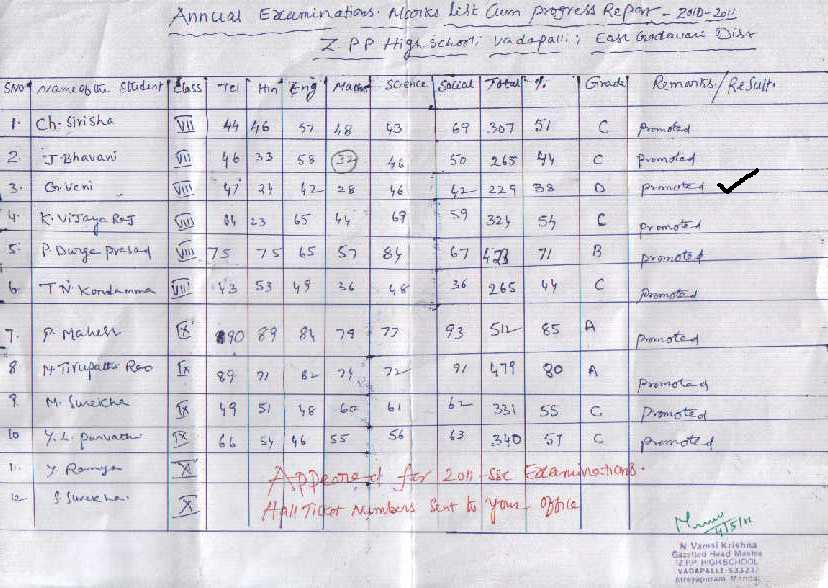 Annual Examinations. Marks List Cum Progress Report - 2010-2011
Z P P High school, Vadapalli, East Godavari Dist
SNo Name of the Student Class Tel Hin Eng Maths Science Social Total % Grade Remarks/Result.
1. Ch. Sirisha VII 44 46 57 48 43 69 307 51 C promoted
2 J. Bhavani VII 46 33 58 32 46 50 265 44 C promoted
3. G. Veni VIII 47 24 42 28 46 42 229 38 D promoted ✓
4. K. Vijaya Raj VIII 23 65 44 69 59 324 54 C promoted
5 P. Durga prasad VIII 75 75 65 57 84 67 423 71 B promoted
6. T N Kondamma VIII 43 53 49 36 48 36 265 44 C promoted
7. P. Mahesh IX 90 89 84 79 77 93 512 85 A Promoted
8 N Tirupathi Rao IX 89 71 82 74 72 91 479 80 A promoted
9 M. Surekha IX 49 51 48 60 61 62 331 55 C promoted
10 Y. L. parvathi IX 66 54 46 55 56 63 340 57 C promoted
11 Y Ramya X Appeared for 2011-SSC Examinations.
12 S Surekha X Hall Ticket Numbers sent to your office
4/5/11
N Vamsi Krishna
Gazetted Head Master
Z.P.P HIGH SCHOOL
VADAPALLI-533237
Atreyapuram Mandal